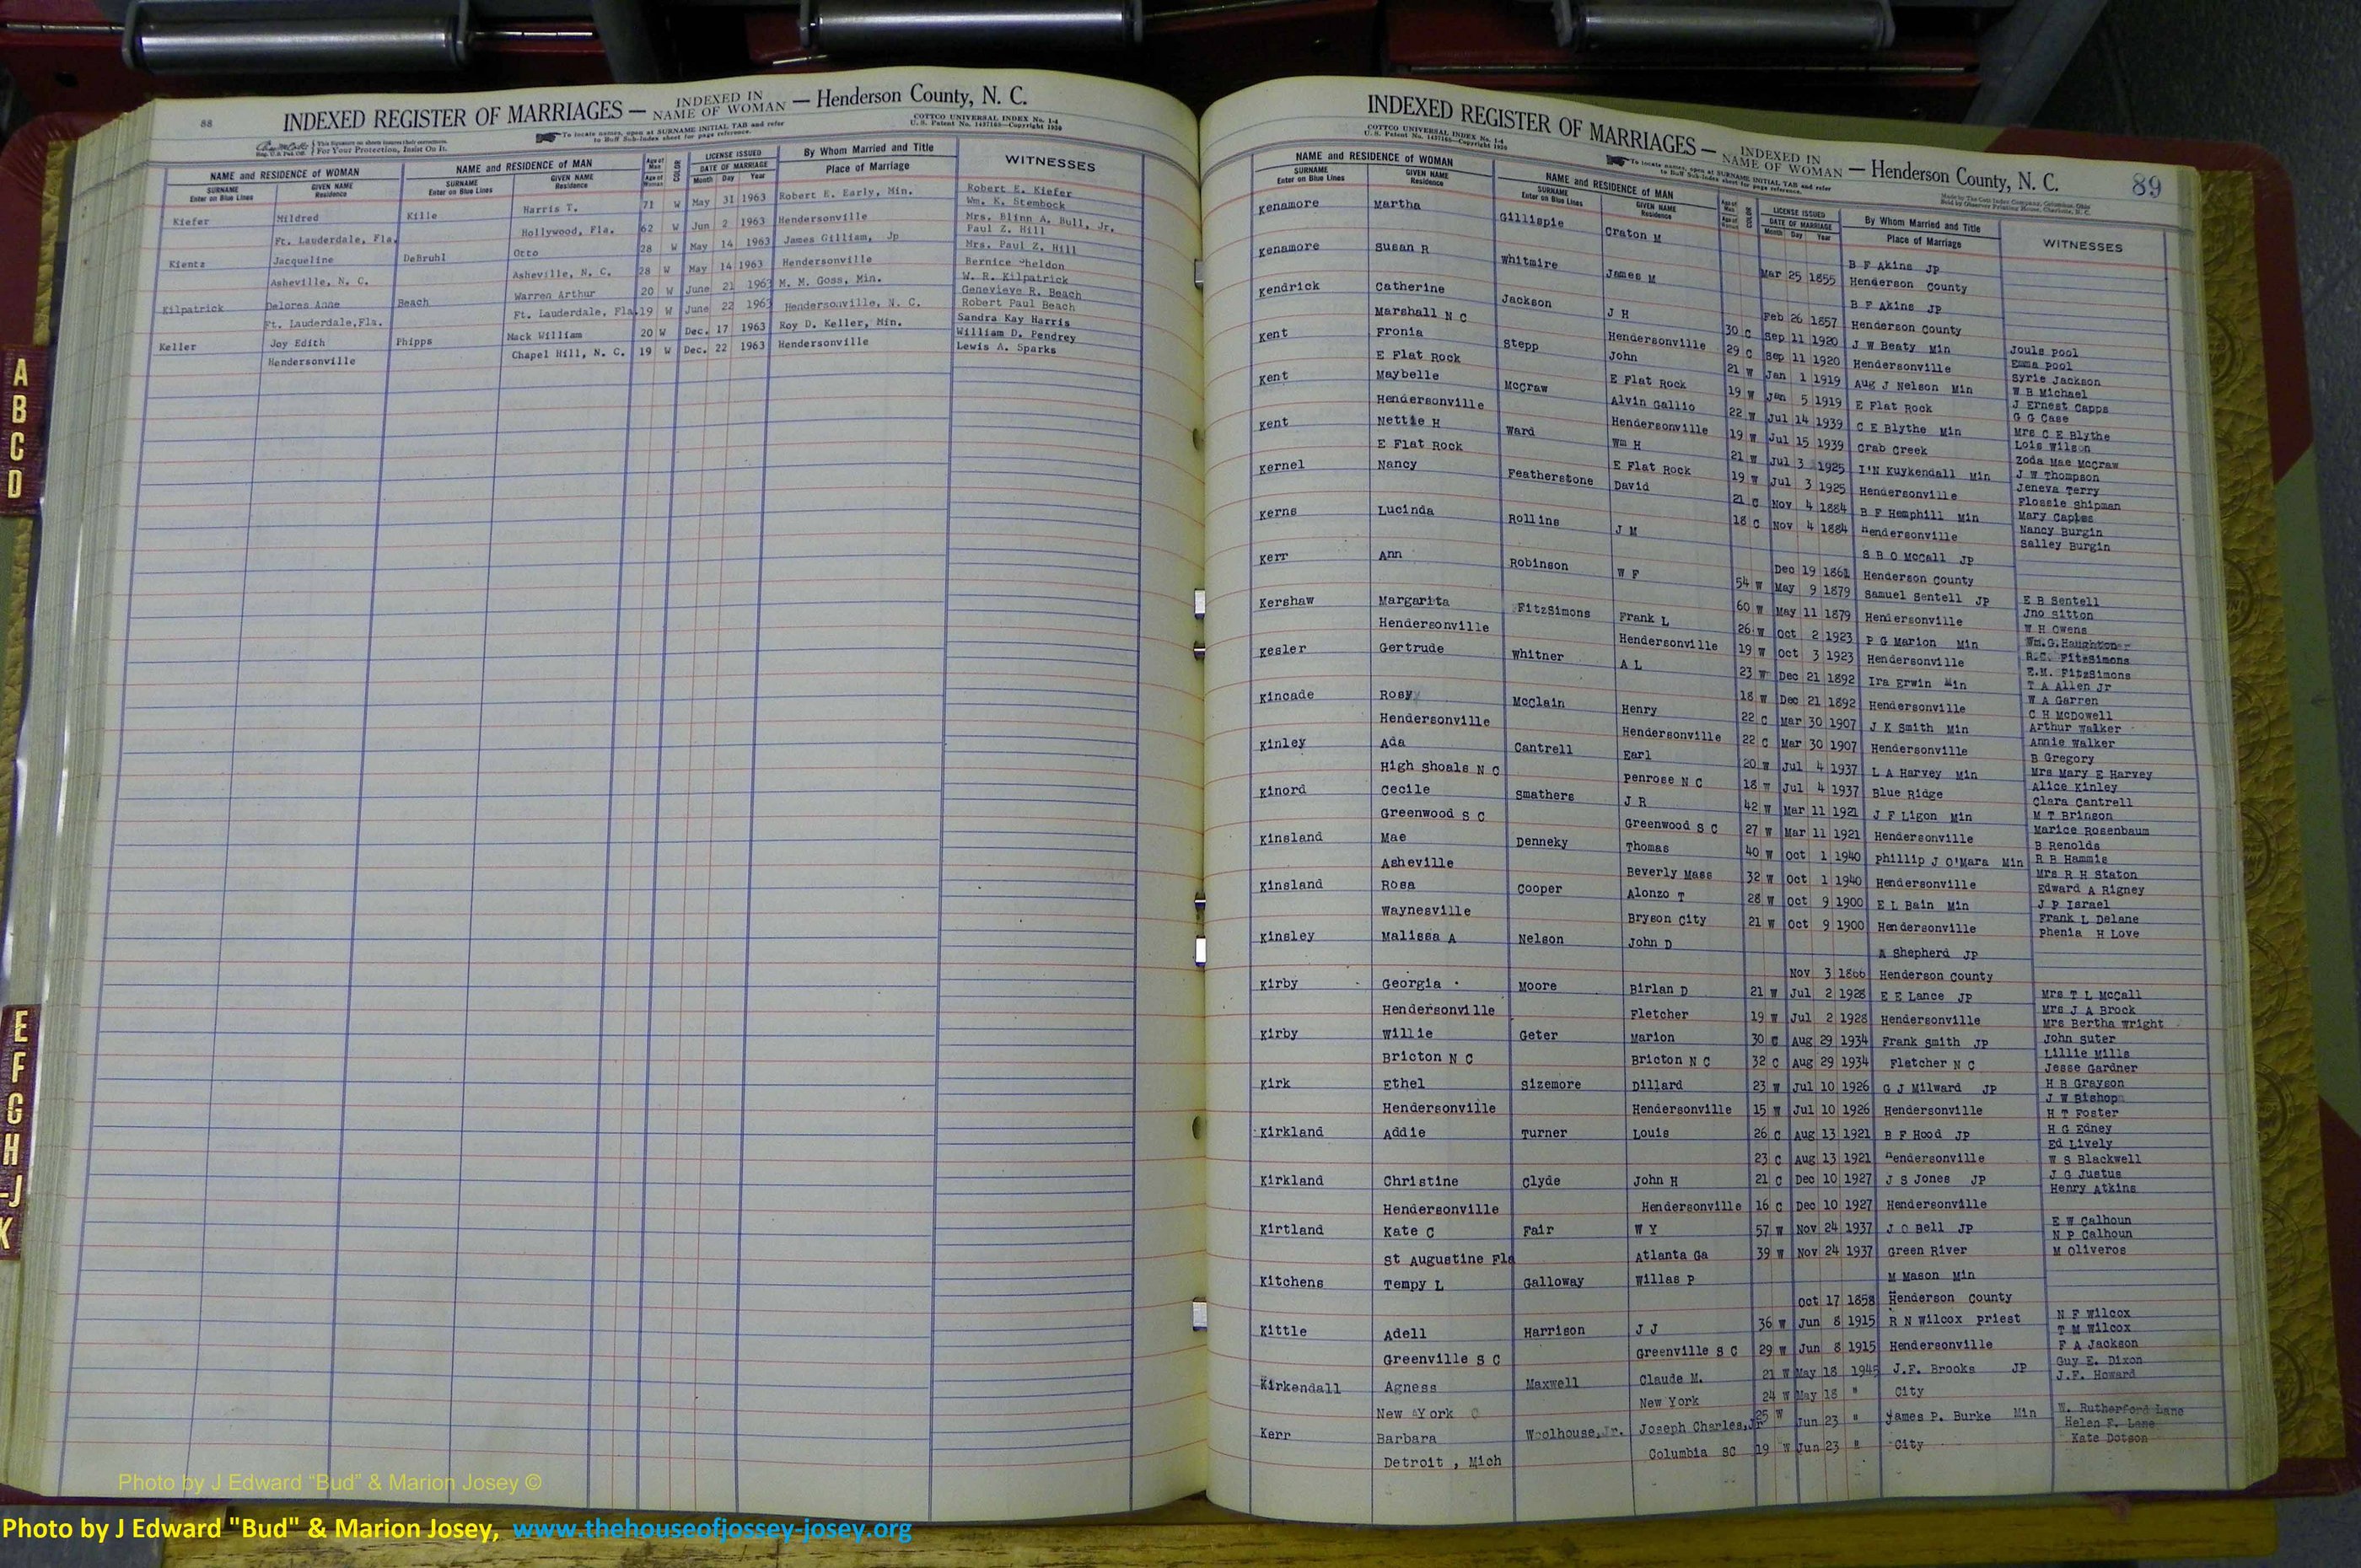 88
INDEXED REGISTER OF MARRIAGES — INDEXED IN NAME OF WOMAN — Henderson County, N. C.
To locate names, open at SURNAME INITIAL TAB and refer to Buff Sub-Index sheet for page reference.
COTTCO UNIVERSAL INDEX No. 1-4
For Your Protection, Insist On It.
NAME and RESIDENCE OF WOMAN NAME and RESIDENCE OF MAN Age of Man Age of Woman COLOR LICENSE ISSUED DATE OF MARRIAGE By Whom Married and Title WITNESSES
SURNAME Enter on Blue Lines GIVEN NAME Residence SURNAME Enter on Blue Lines GIVEN NAME Residence Month Day Year Place of Marriage
Kiefer Mildred Kille Harris T. 71 W May 31 1963 Robert E. Early, Min. Robert E. Kiefer
Wm. K. Stembock
Ft. Lauderdale, Fla. Hollywood, Fla. 62 W Jun 2 1963 Hendersonville Mrs. Blinn A. Bull, Jr.
Kientz Jacqueline DeBruhl Otto 28 W May 14 1963 James Gilliam, Jp Paul Z. Hill
Mrs. Paul Z. Hill
Asheville, N. C. Asheville, N. C. 28 W May 14 1963 Hendersonville Bernice Sheldon
Kilpatrick Delores Anne Beach Warren Arthur 20 W June 21 1963 M. M. Goss, Min. W. R. Kilpatrick
Genevieve R. Beach
Ft. Lauderdale,Fla. Ft. Lauderdale, Fla. 19 W June 22 1963 Hendersonville, N. C. Robert Paul Beach
Keller Joy Edith Phipps Mack William 20 W Dec. 17 1963 Roy D. Keller, Min. Sandra Kay Harris
William D. Pendrey
Hendersonville Chapel Hill, N. C. 19 W Dec. 22 1963 Hendersonville Lewis A. Sparks
A
B
C
D
E
F
G
H
I-J
K
INDEXED REGISTER OF MARRIAGES — INDEXED IN NAME OF WOMAN — Henderson County, N. C. 89
COTTCO UNIVERSAL INDEX No. 1-4
To locate names, open at SURNAME INITIAL TAB and refer to Buff Sub-Index sheet for page reference.
NAME and RESIDENCE OF WOMAN NAME and RESIDENCE OF MAN COLOR LICENSE ISSUED DATE OF MARRIAGE By Whom Married and Title WITNESSES
SURNAME Enter on Blue Lines GIVEN NAME Residence SURNAME Enter on Blue Lines GIVEN NAME Residence Month Day Year Place of Marriage
Kenamore Martha Gillispie Craton M B F Akins JP
Mar 25 1855 Henderson County
Kenamore Susan R Whitmire James M B F Akins JP
Feb 26 1857 Henderson County
Kendrick Catherine Jackson J H 30 C Sep 11 1920 J W Beaty Min Jouls Pool
Emma Pool
Marshall N C Hendersonville 29 C Sep 11 1920 Hendersonville Syrie Jackson
Kent Fronia Stepp John 21 W Jan 1 1919 Aug J Nelson Min W B Michael
J Ernest Capps
E Flat Rock E Flat Rock 19 W Jan 5 1919 E Flat Rock G G Case
Kent Maybelle McCraw Alvin Gallio 22 W Jul 14 1939 C E Blythe Min Mrs C E Blythe
Lois Wilson
Hendersonville Hendersonville 19 W Jul 15 1939 Crab Creek Zoda Mae McCraw
Kent Nettie H Ward Wm H 21 W Jul 3 1925 I N Kuykendall Min J W Thompson
Jeneva Terry
E Flat Rock E Flat Rock 19 W Jul 3 1925 Hendersonville Flossie Shipman
Kernel Nancy Featherstone David 21 C Nov 4 1884 B F Hemphill Min Mary Caples
Nancy Burgin
18 C Nov 4 1884 Hendersonville Salley Burgin
Kerns Lucinda Rollins J M S B O McCall JP
Dec 19 1861 Henderson County
Kerr Ann Robinson W F 54 W May 9 1879 Samuel Sentell JP E B Sentell
Jno Sitton
60 W May 11 1879 Hendersonville W H Owens
Kershaw Margarita FitzSimons Frank L 26 W Oct 2 1923 P G Marion Min Wm.G.Haughton
R.C. FitzSimons
Hendersonville Hendersonville 19 W Oct 3 1923 Hendersonville E.M. FitzSimons
Kesler Gertrude Whitner A L 23 W Dec 21 1892 Ira Erwin Min T A Allen Jr
W A Garren
18 W Dec 21 1892 Hendersonville C H McDowell
Kincade Rosy McClain Henry 22 C Mar 30 1907 J K Smith Min Arthur Walker
Annie Walker
Hendersonville Hendersonville 22 C Mar 30 1907 Hendersonville B Gregory
Kinley Ada Cantrell Earl 20 W Jul 4 1937 L A Harvey Min Mrs Mary E Harvey
Alice Kinley
High Shoals N C Penrose N C 18 W Jul 4 1937 Blue Ridge Clara Cantrell
Kinord Cecile Smathers J R 42 W Mar 11 1921 J F Ligon Min M T Brinson
Marice Rosenbaum
Greenwood S C Greenwood S C 27 W Mar 11 1921 Hendersonville B Renolds
Kinsland Mae Denneky Thomas 40 W Oct 1 1940 Phillip J O'Mara Min R B Hammie
Mrs R H Staton
Asheville Beverly Mass 32 W Oct 1 1940 Hendersonville Edward A Rigney
Kinsland Rosa Cooper Alonzo T 28 W Oct 9 1900 E L Bain Min J P Israel
Frank L Delane
Waynesville Bryson City 21 W Oct 9 1900 Hendersonville Phenia H Love
Kinsley Malissa A Nelson John D A Shepherd JP
Nov 3 1866 Henderson County
Kirby Georgia Moore Birlan D 21 W Jul 2 1928 E E Lance JP Mrs T L McCall
Mrs J A Brock
Hendersonville Fletcher 19 W Jul 2 1928 Hendersonville Mrs Bertha Wright
Kirby Willie Geter Marion 30 C Aug 29 1934 Frank Smith JP John Suter
Lillie Mills
Bricton N C Bricton N C 32 C Aug 29 1934 Fletcher N C Jesse Gardner
Kirk Ethel Sizemore Dillard 23 W Jul 10 1926 G J Milward JP H B Grayson
J W Bishop
Hendersonville Hendersonville 15 W Jul 10 1926 Hendersonville H T Foster
Kirkland Addie Turner Louis 26 C Aug 13 1921 B F Hood JP H G Edney
Ed Lively
23 C Aug 13 1921 Hendersonville W S Blackwell
Kirkland Christine Clyde John H 21 C Dec 10 1927 J S Jones JP J G Justus
Henry Atkins
Hendersonville Hendersonville 16 C Dec 10 1927 Hendersonville
Kirtland Kate C Fair W Y 57 W Nov 24 1937 J O Bell JP E W Calhoun
N P Calhoun
St Augustine Fla Atlanta Ga 39 W Nov 24 1937 Green River M Oliveros
Kitchens Tempy L Galloway Willas P M Mason Min
Oct 17 1858 Henderson County
Kittle Adell Harrison J J 36 W Jun 8 1915 R N Wilcox Priest N F Wilcox
T M Wilcox
Greenville S C Greenville S C 29 W Jun 8 1915 Hendersonville F A Jackson
Kirkendall Agness Maxwell Claude M. 21 W May 18 1945 J.F. Brooks JP Guy E. Dixon
J.F. Howard
New York New York 24 W May 18 " City
Kerr Barbara Woolhouse,Jr. Joseph Charles,Jr 25 W Jun 23 " James P. Burke Min W. Rutherford Lane
Helen F. Lane
Detroit , Mich Columbia SC 19 W Jun 23 " City Kate Dotson
Photo by J Edward “Bud” & Marion Josey ©
Photo by J Edward "Bud" & Marion Josey, www.thehouseofjossey-josey.org